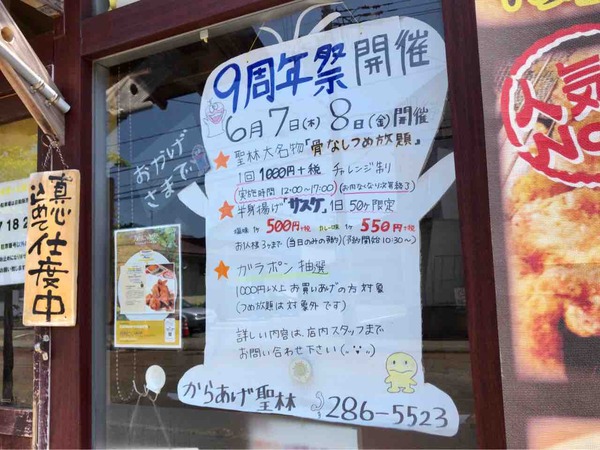 おかげ
さまで
9周年祭開催
6月7日(木)8日(金)開催
聖林大名物『骨なしつめ放題』
1回1000円+税 チャレンジ制
実施時間 12:00〜17:00
半身揚げ「サスケ」1日50ヶ限定
塩味1ヶ500円+税 カレー味1ヶ550円+税
お1人様3ヶまで(当日のみの予約)(予約開始10:30〜)
ガラポン抽選
1000円以上お買いあげの方対象
(つめ放題は対象外です)
詳しい内容は、店内スタッフまで
お問い合わせ下さい
からあげ聖林 286-5523
真心
込めて仕度中
人気
No